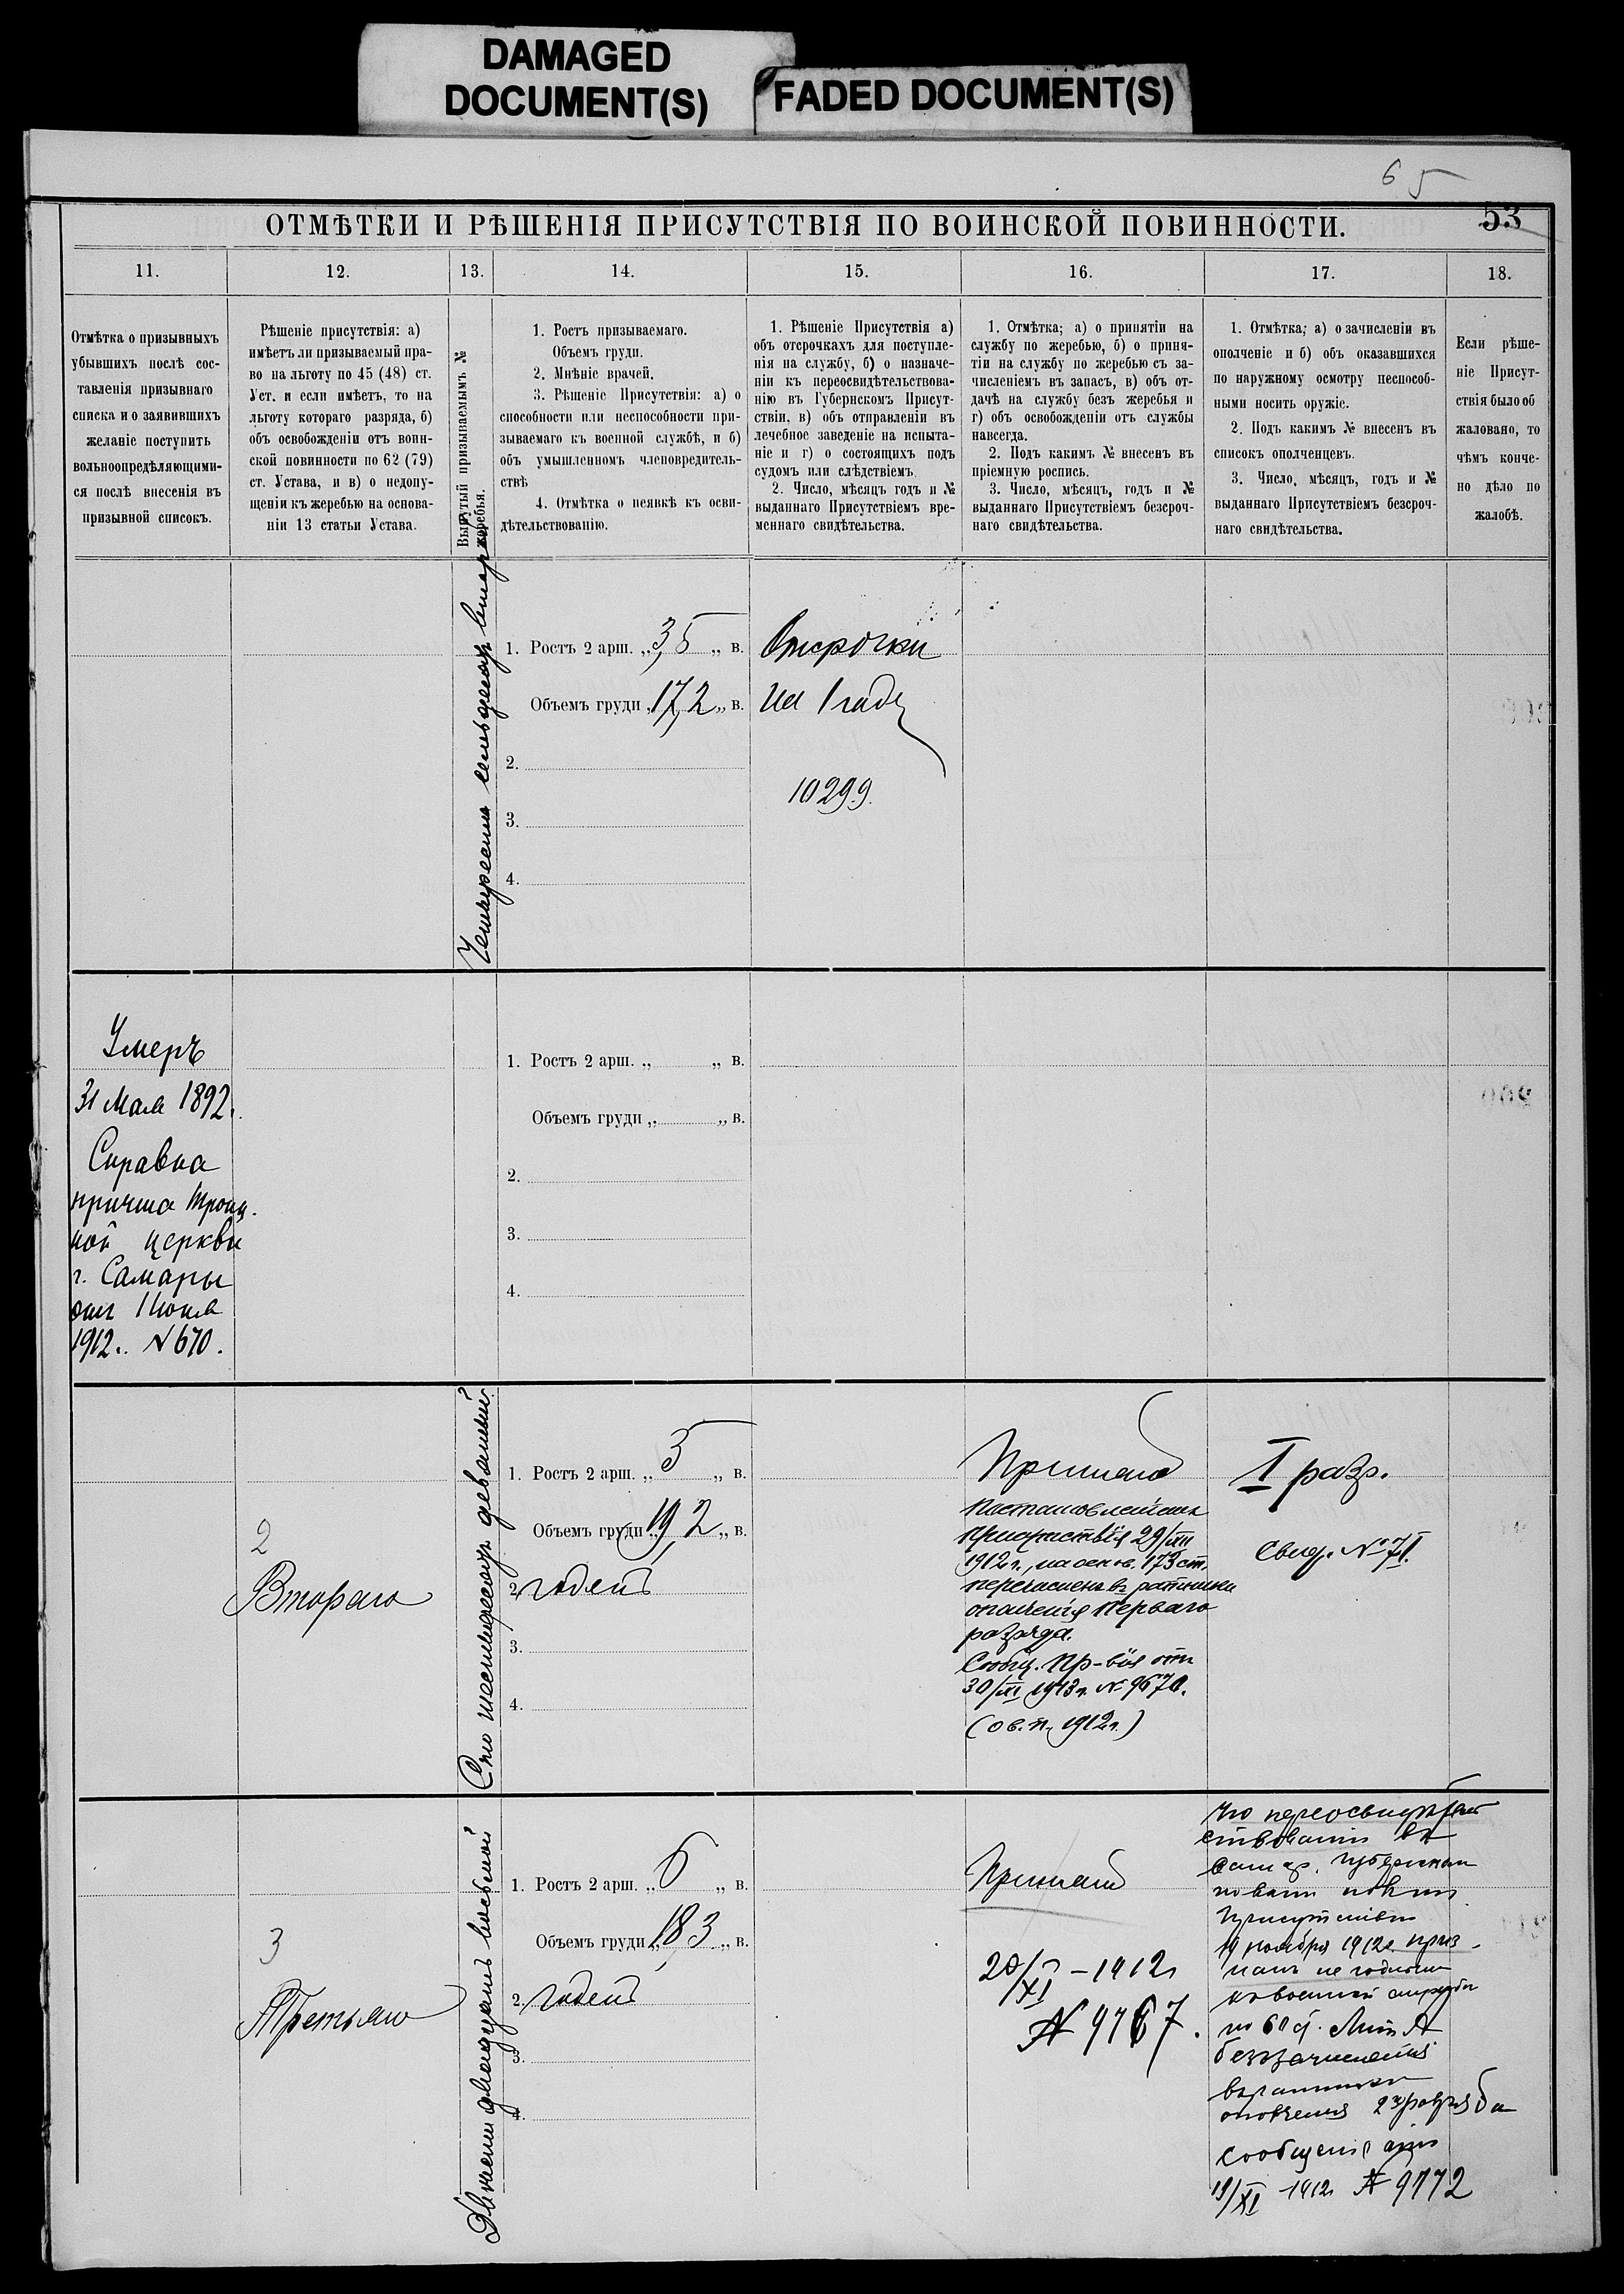 DAMAGED
DOCUMENT(S)
FADED DOCUMENT(S)
65
53
ОТМѢТКИ И РѢШЕНІЯ ПРИСУТСТВІЯ ПО ВОИНСКОЙ ПОВИННОСТИ.
11.
12.
13.
14.
15.
16.
17.
18.
Отмѣтка о призывныхъ
убывшихъ послѣ сос-
тавленія призывнаго
списка и о заявившихъ
желаніе поступить
вольноопредѣляющими-
ся послѣ внесенія въ
призывной списокъ.
Рѣшеніе присутствія: а)
имѣетъ ли призываемый пра-
во на льготу по 45 (48) ст.
Уст. и если имѣетъ, то на
льготу котораго разряда, б)
объ освобожденіи отъ воин-
ской повинности по 62 (79)
ст. Устава, и в) о недопу-
щеніи къ жеребью на основа-
ніи 13 статьи Устава.
Вынутый призываемымъ №
жеребья.
1. Ростъ призываемаго.
Объемъ груди.
2. Мнѣніе врачей.
3. Рѣшеніе Присутствія: а) о
способности или неспособности при-
зываемаго къ военной службѣ, и б)
объ умышленномъ членовредитель-
ствѣ
4. Отмѣтка о неявкѣ къ осви-
дѣтельствованію.
1. Рѣшеніе Присутствія а)
объ отсрочкахъ для поступле-
нія на службу, б) о назначе-
ніи къ переосвидѣтельствова-
нію въ Губернскомъ Присут-
ствіи, в) объ отправленіи въ
лечебное заведеніе на испыта-
ніе и г) о состоящихъ подъ
судомъ или слѣдствіемъ.
2. Число, мѣсяцъ годъ и №
выданнаго Присутствіемъ вре-
меннаго свидѣтельства.
1. Отмѣтка; а) о принятіи на
службу по жеребью, б) о приня-
тіи на службу по жеребью съ за-
численіемъ въ запасъ, в) объ от-
дачѣ на службу безъ жеребья и
г) объ освобожденіи отъ службы
навсегда.
2. Подъ какимъ № внесенъ въ
пріемную роспись.
3. Число, мѣсяцъ, годъ и №
выданнаго Присутствіемъ безсроч-
наго свидѣтельства.
1. Отмѣтка; а) о зачисленіи въ
ополченіе и б) объ оказавшихся
по наружному осмотру неспособ-
ными носить оружіе.
2. Подъ какимъ № внесенъ въ
списокъ ополченцевъ.
3. Число, мѣсяцъ, годъ и №
выданнаго Присутствіемъ безсроч-
наго свидѣтельства.
Если рѣше-
ніе Присут-
ствія было об
жаловано, то
чѣмъ конче-
но дѣло по
жалобѣ.
Четыреста семьдесятъ
1. Ростъ 2 арш. „ 3,5 „ в.
Объемъ груди „ 17,2 „ в.
2.
3.
4.
Отсрочки
на 1 годъ
10299.
Умеръ
31 Мая 1892.
Справка
причта Троиц.
кой церкви
г. Самары
отъ 1 Іюня
1912. N 670.
1. Ростъ 2 арш. „ „ в.
Объемъ груди „ „ в.
2.
3.
4.
2
Второго
Сто шестьдесятъ девятый
1. Ростъ 2 арш. „ 5 „ в.
Объемъ груди „ 19,2 „ в.
2. годенъ
3.
4.
Принятъ
Постановленіемъ
Присутствія 29/XII
1912 г., на основ. 173 ст.
перечисленъ въ ратники
ополченія перваго
разряда.
Сообщ. Пр-вія отъ
30/XI 1913 г. № 9670.
(о в. п. 1912 г.)
I разр.
Свид. № 71.
3
Третьяго
Двѣсти двадцать восьмой
1. Ростъ 2 арш. „ 6 „ в.
Объемъ груди „ 18,3 „ в.
2. годенъ
3.
4.
Принятъ
20/XI – 1912
№ 9767.
По переосвидѣтель
ствованіи въ
Самар. Губернском
по воин. повин.
Присутствіи
19 ноября 1912 г. приз-
нанъ не годнымъ
къ военной службѣ
по 60 ст. Лит. А
беззачисленія
въ ратники
ополченія 2го разряда
Сообщеніе отъ
19/XI 1912 № 9772